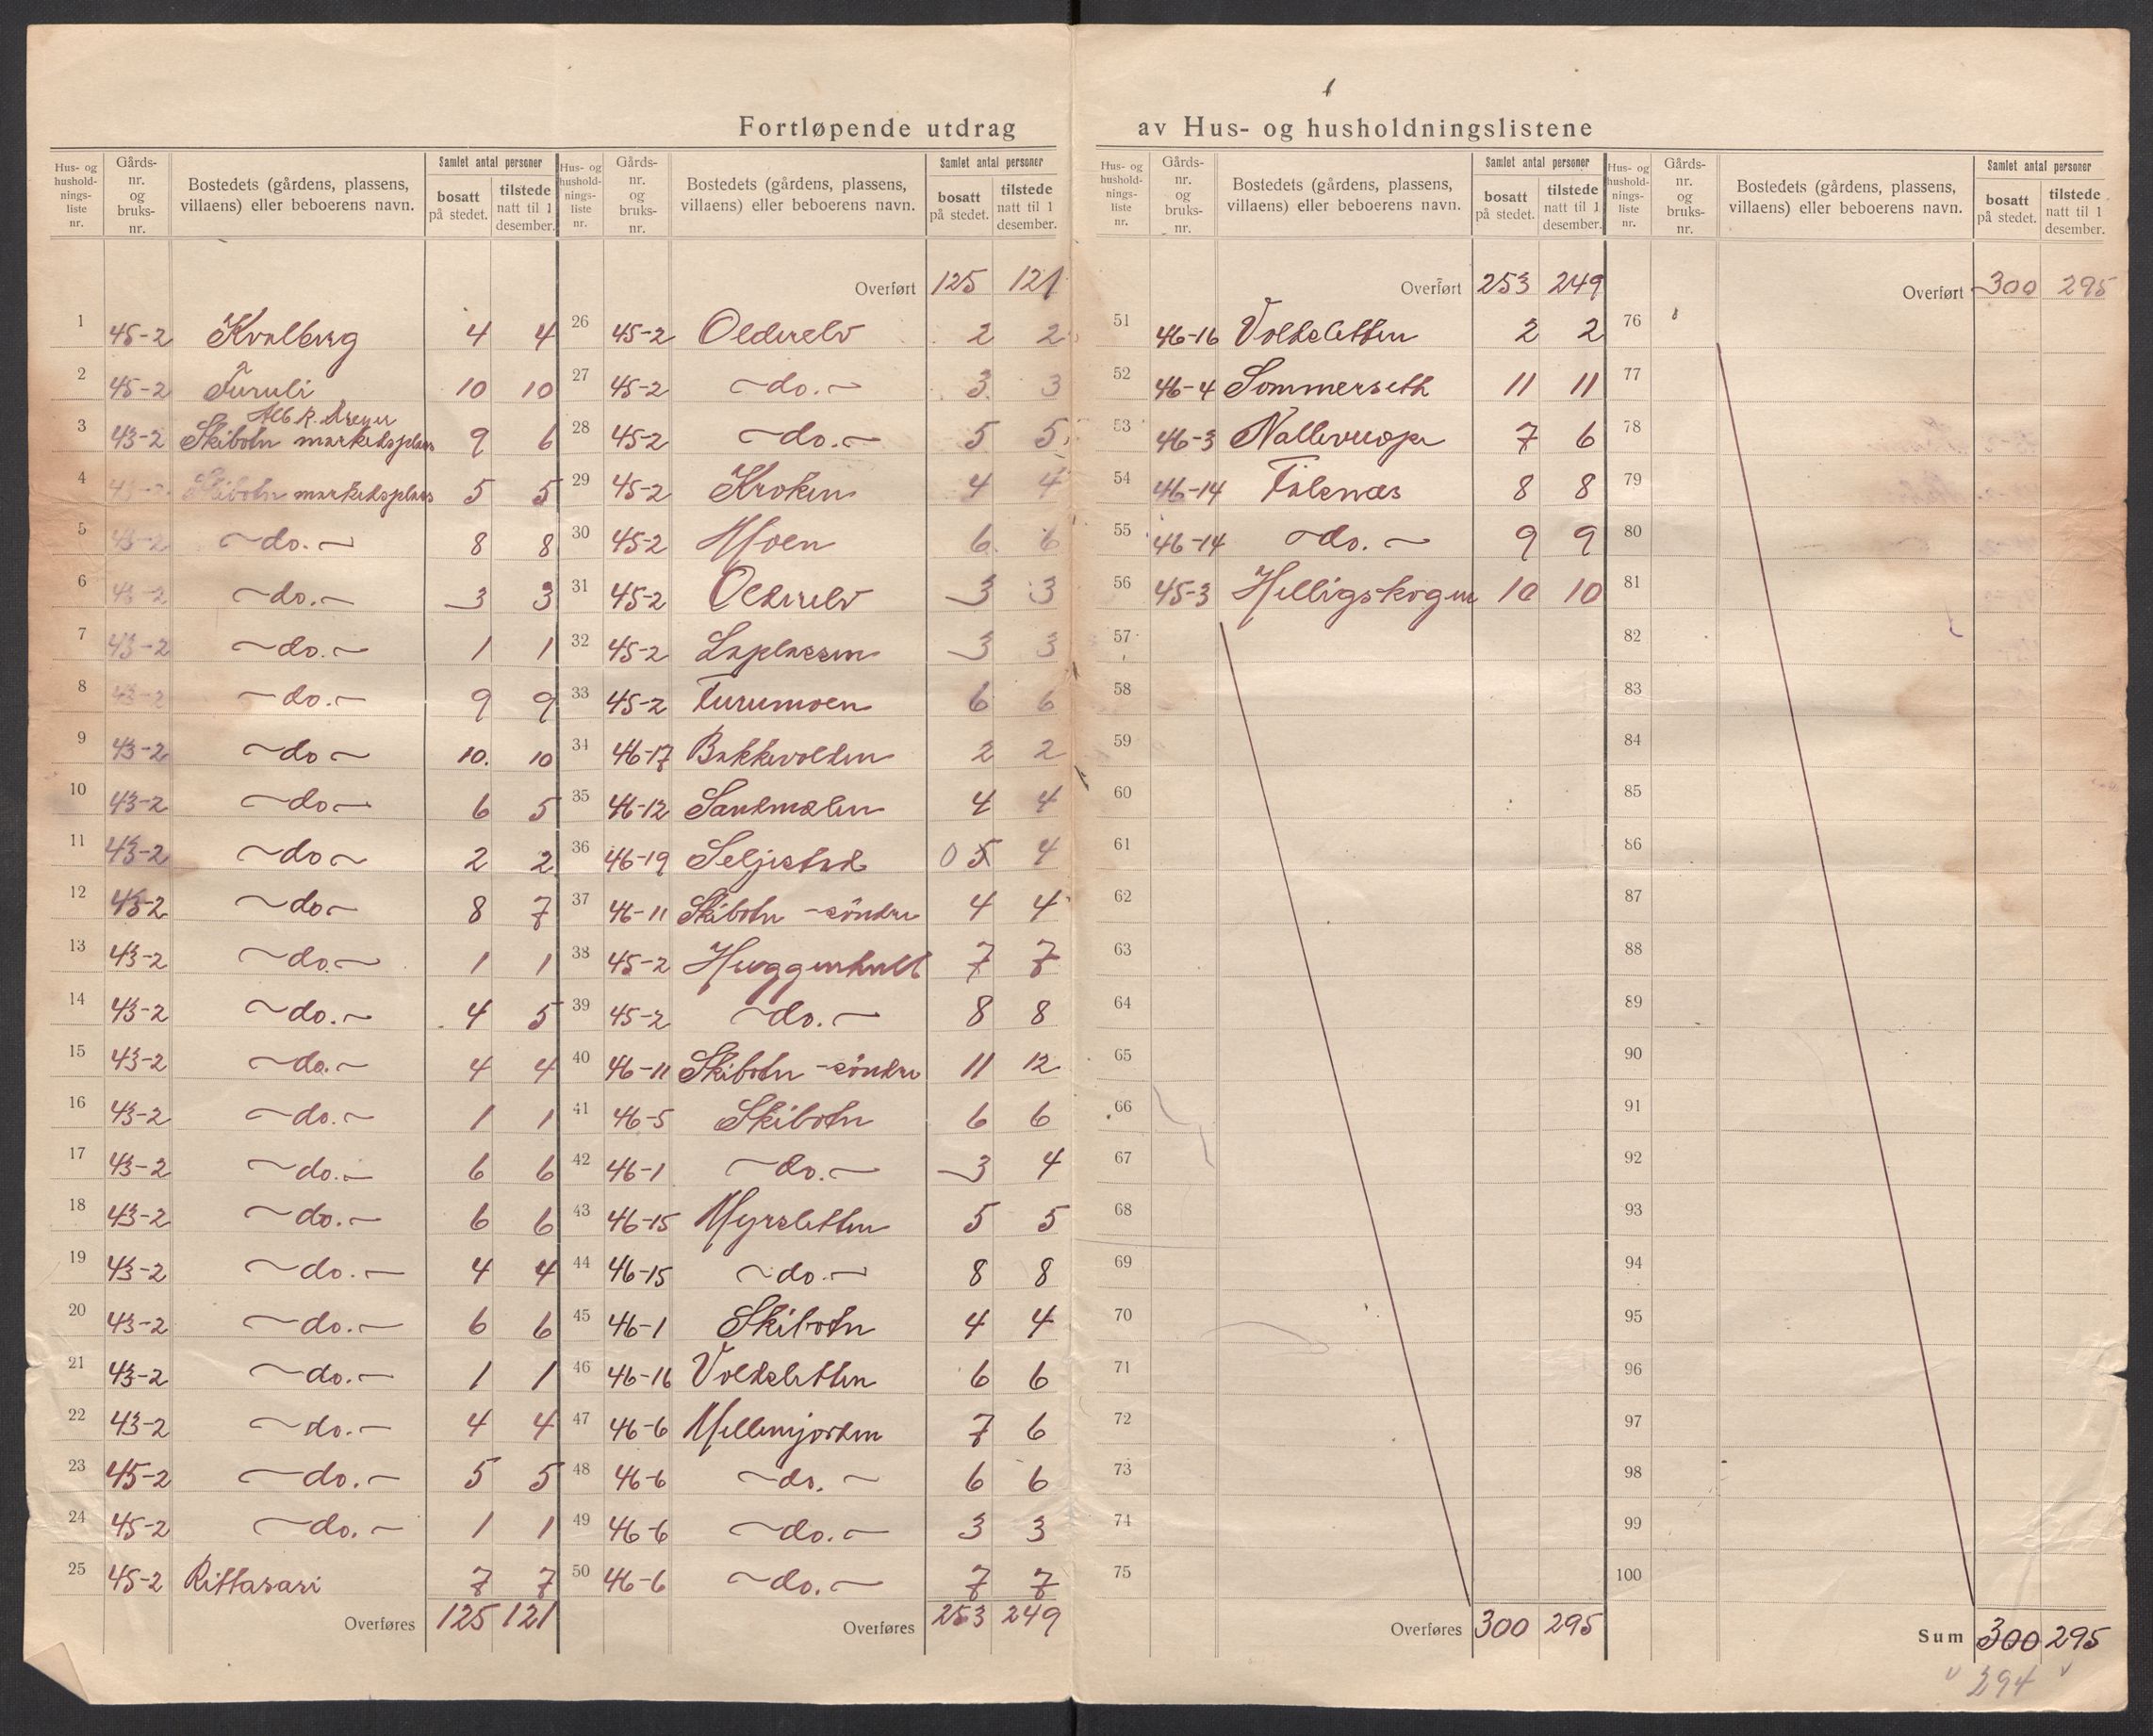 Fortløpende utdrag av Hus- og husholdningslistene
Hus- og husholdnings-liste nr. Gårds-nr. og bruks-nr. Bostedets (gårdens, plassens, villaens) eller beboerens navn. Samlet antal personer bosatt på stedet. tilstede natt til 1 desember.
1 45-2 Kvalberg 4 4
2 45-2 Furuli 10 10
Alb R. Dreyer
3 43-2 Skibotn markedsplass 9 6
4 43-2 Skibotn markedsplass 5 5
5 43-2 ~do.~ 8 8
6 43-2 ~do.~ 3 3
7 43-2 ~do.~ 1 1
8 43-2 ~do.~ 9 9
9 43-2 ~do~ 10. 10
10 43-2 ~do~ 6 5
11 43-2 ~do~ 2 2
12 43-2 ~do~ 8 7
13 43-2 ~do.~ 1 1
14 43-2 ~do.~ 4 5
15 43-2 ~do.~ 4 4
16 43-2 ~do.~ 1 1
17 43-2 ~do.~ 6 6
18 43-2 ~do.~ 6 6
19 43-2 ~do.~ 4 4
20 43-2 ~do.~ 6 6
21 43-2 ~do.~ 1 1
22 43-2 ~do.~ 4 4
23 45-2 ~do.~ 5 5
24 45-2 ~do.~ 1 1
25 45-2 Rittavari 7 7
Overføres 125 121
Hus- og husholdnings-liste nr. Gårds-nr. og bruks-nr. Bostedets (gårdens, plassens, villaens) eller beboerens navn. Samlet antal personer bosatt på stedet. tilstede natt til 1 desember.
Overført 125 121
26 45-2 Olderelv 2 2
27 45-2 ~do.~ 3 3
28 45-2 ~do.~ 5 5
29 45-2 Kroken 4 4
30 45-2 Moen 6 6
31 45-2 Olderelv 3 3
32 45-2 Laplassen 3 3
33 45-2 Furumoen 6 6
34 46-17 Bakkevolden 2 2
35 46-12 Sandmælen 4 4
36 46-19 Seljestad 0 5 4
37 46-11 Skibotn -söndre 4 4
38 45-2 Huggenhult 7 7
39 45-2 ~do.~ 8 8
40 46-11 Skibotn -söndre 11 12
41 46-5 Skibotn 6 6
42 46-1 ~do.~ 3 4
43 46-15 Myrsletten 5 5
44 46-15 ~do.~ 8 8
45 46-1 Skibotn 4 4
46 46-16 Voldsletten 6 6
47 46-6 Mellemjorden 7 6
48 46-6 ~do.~ 6 6
49 46-6 ~do.~ 3 3
50 46-6 ~do.~ 7 7
Overføres 253 249
Hus- og husholdnings-liste nr. Gårds-nr. og bruks-nr. Bostedets (gårdens, plassens, villaens) eller beboerens navn. Samlet antal personer bosatt på stedet. tilstede natt til 1 desember.
Overført 253 249
51 46-16 Voldsletten 2 2
52 46-4 Sommerseth 11 11
53 46-3 7 6
54 46-14 Fålsnæs 8 8
55 46-14 ~do.~ 9 9
56 45-3 Helligskogen 10 10
57
58
59
60
61
62
63
64
65
66
67
68
69
70
71
72
73
74
75
Overføres 300 295
Hus- og husholdnings-liste nr. Gårds-nr. og bruks-nr. Bostedets (gårdens, plassens, villaens) eller beboerens navn. Samlet antal personer bosatt på stedet. tilstede natt til 1 desember.
Overført 300 295
76
77
78
79
80
81
82
83
84
85
86
87
88
89
90
91
92
93
94
95
96
97
98
99
100
Sum 300 295
294